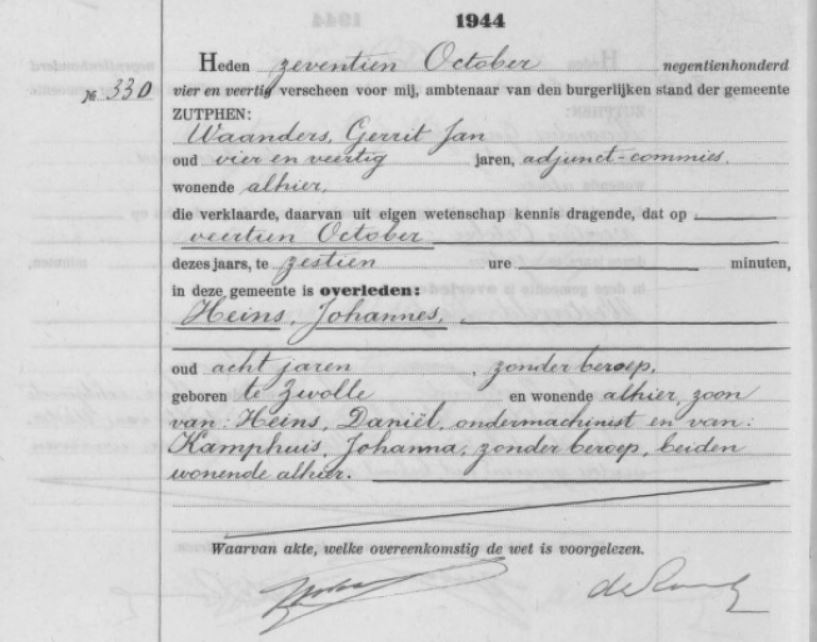 1944
Heden zeventien October negentienhonderd
№ 330 vier en veertig verscheen voor mij, ambtenaar van den burgerlijken stand der gemeente
ZUTPHEN:
Waanders, Gerrit Jan
oud vier en veertig jaren, adjunct-commies.
wonende alhier,
die verklaarde, daarvan uit eigen wetenschap kennis dragende, dat op
veertien October
dezes jaars, te zestien ure minuten,
in deze gemeente is overleden:
Heins, Johannes,
oud acht jaren, zonder beroep,
geboren te Zwolle en wonende alhier, zoon
van: Heins, Daniël, ondermachinist en van:
Kamphuis, Johanna, zonder beroep, beiden
wonende alhier.
Waarvan akte, welke overeenkomstig de wet is voorgelezen.